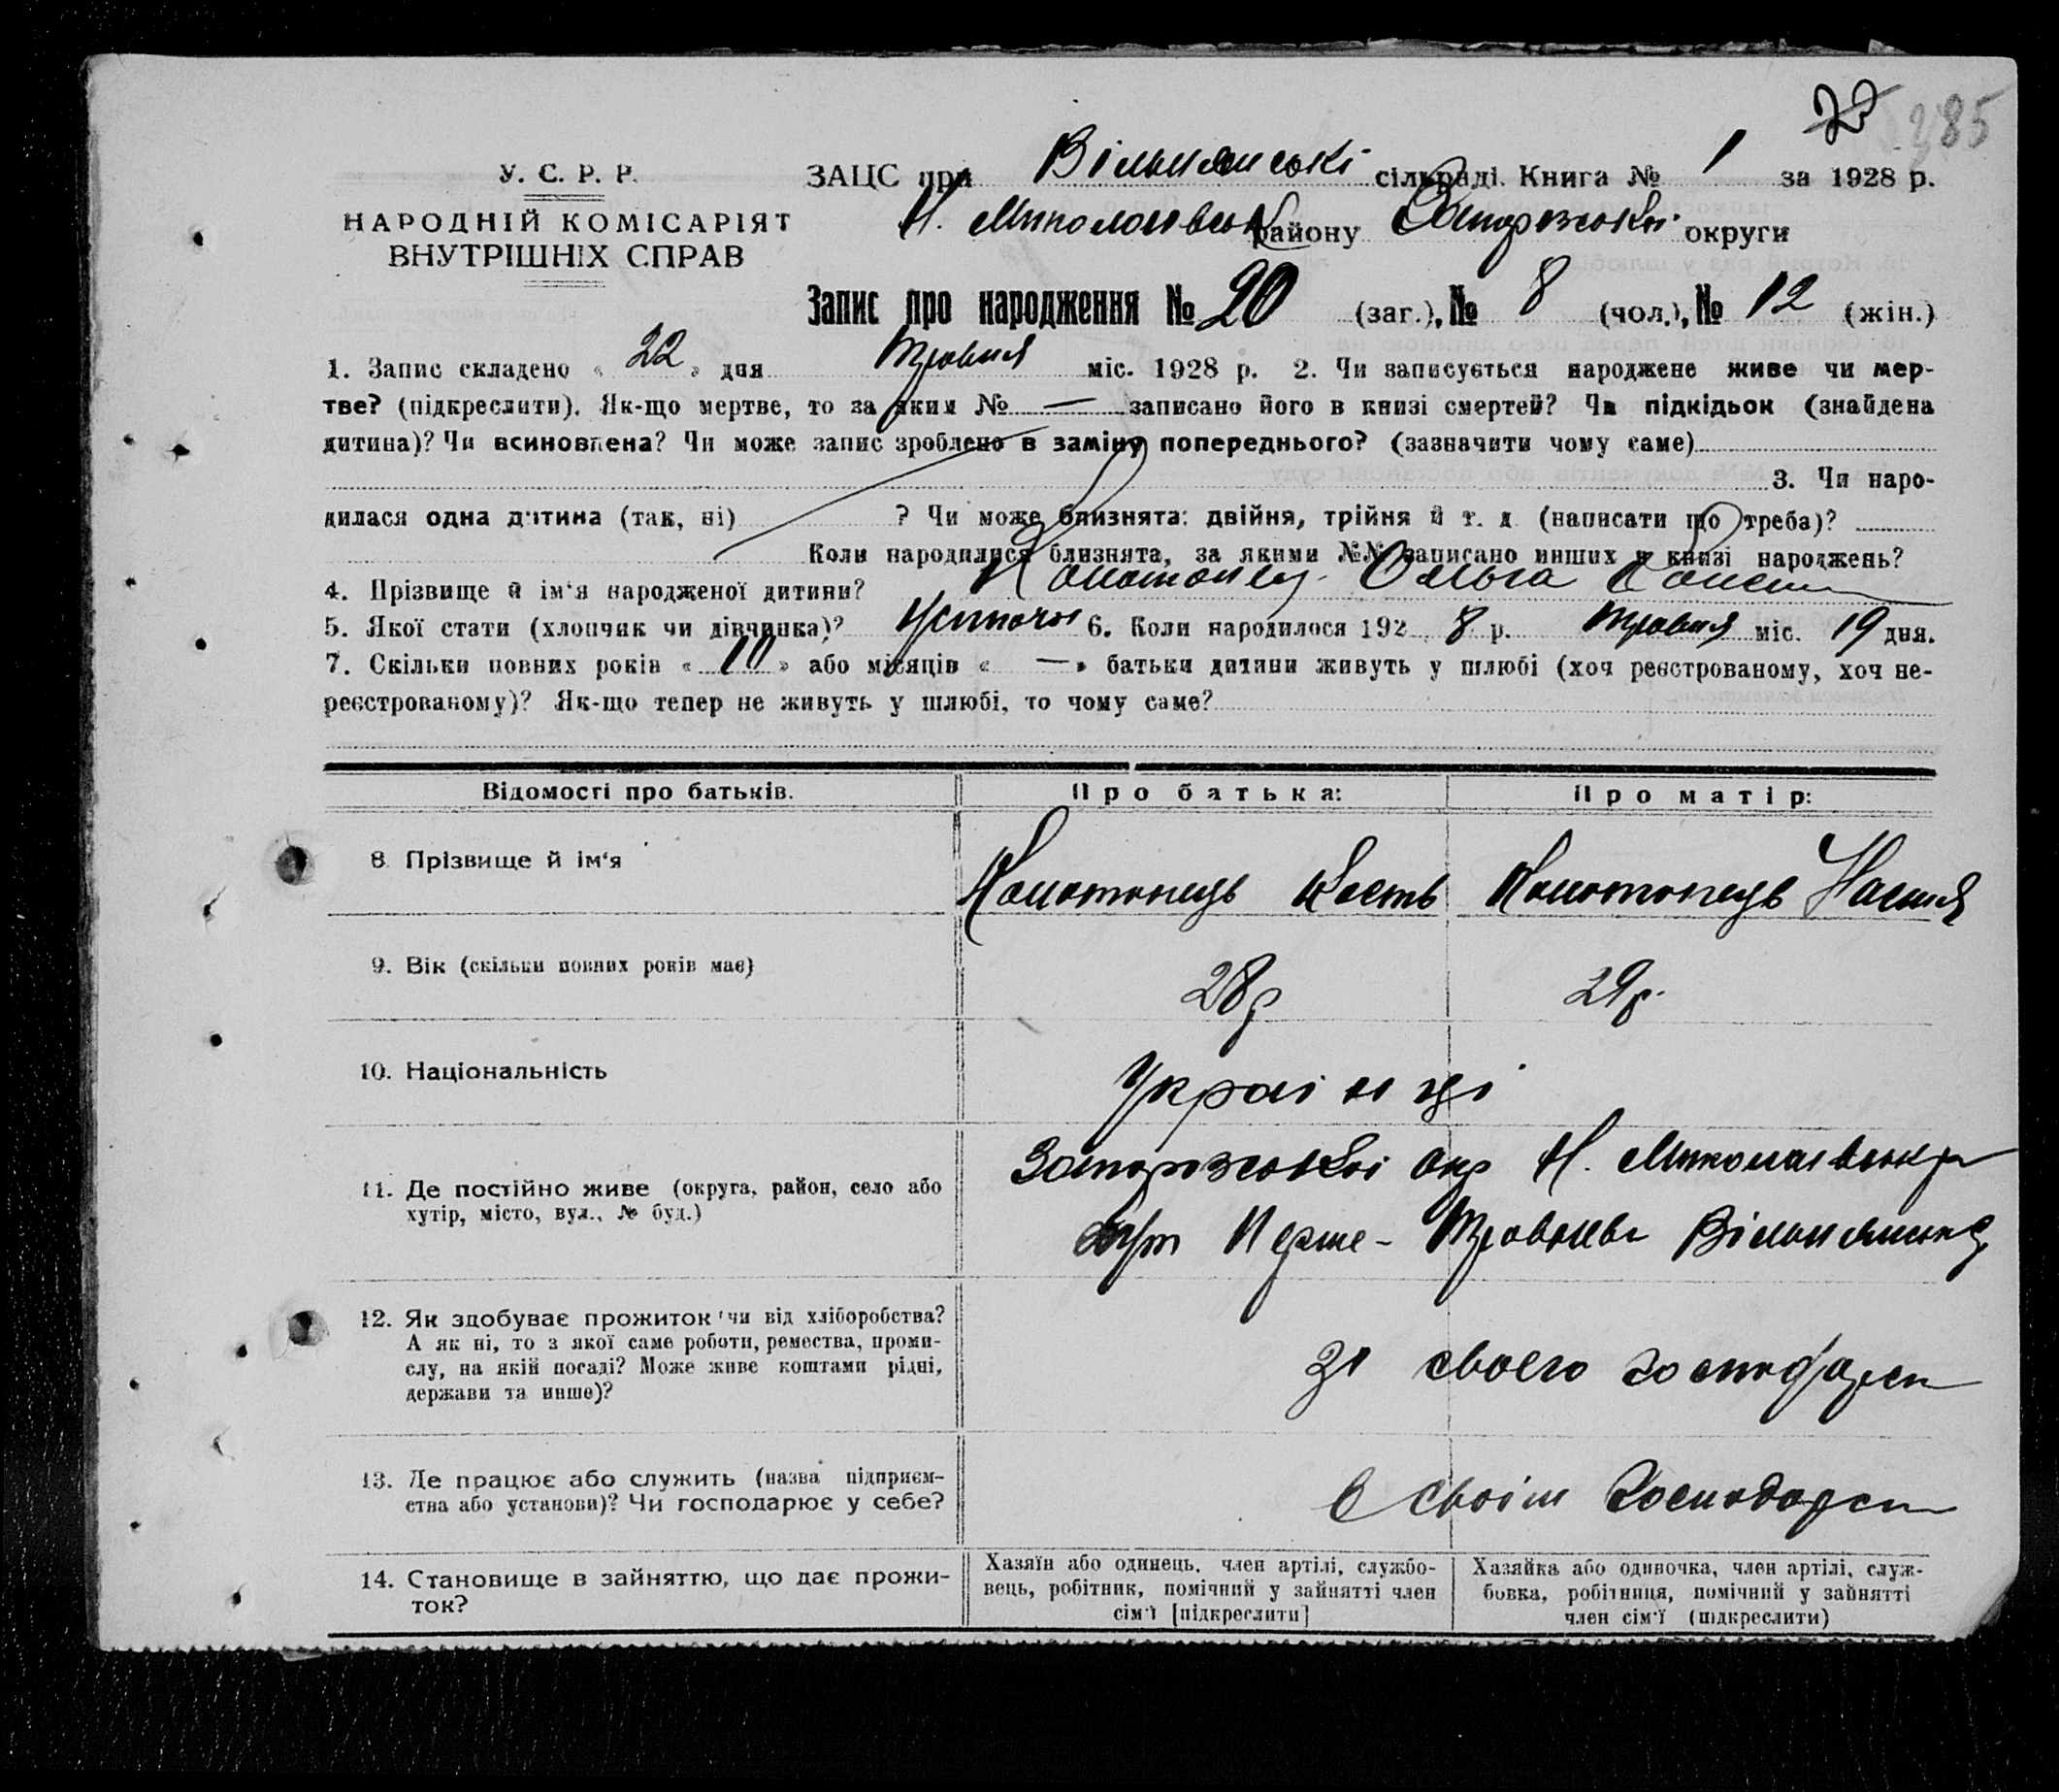 285
У. С. Р. Р.
НАРОДНІЙ КОМІСАРІЯТ
ВНУТРІШНІХ СПРАВ
ЗАЦС при Вільнянські сільраді. Книга № 1 за 1928 р.
Н. Миколаївськ району Запорізької округи
Запис про народження № 20 (заг.), № 8 (чол.), № 12 (жін.)
1. Запис складено « 22 » дня травня міс. 1928 р. 2. Чи записується народжене живе чи мер-
тве? (підкреслити). Як-що мертве, то за яким № — записано його в книзі смертей? Чи підкідьок (знайдена
дитина)? Чи всиновлена? Чи може запис зроблено в заміну попереднього? (зазначити чому саме)
3. Чи наро-
дилася одна дитина (так, ні) ? Чи може близнята: двійня, трійня й т. д. (написати що треба)?
Коли народилися близнята, за якими №№ записано инших в книзі народжень?
4. Прізвище й ім'я народженої дитини? Ольга
5. Якої стати (хлопчик чи дівчинка)? Жіночої 6. Коли народилося 192 8 р. травня міс. 19 дня.
7. Скільки повних років « 10 » або місяців « — » батьки дитини живуть у шлюбі (хоч реєстрованому, хоч не-
реєстрованому)? Як-що тепер не живуть у шлюбі, то чому саме?
Відомості про батьків. Про батька: Про матір:
8. Прізвище й ім'я Конотопець Кость Конотопець Настя
9. Вік (скільки повних років має) 28 р 29 р.
10. Національність Українці
11. Де постійно живе (округа, район, село або
хутір, місто, вул., № буд.)
Запорізької окр Н. Миколаївськ р
хут Перше-Травневе
12. Як здобуває прожиток чи від хліборобства?
А як ні, то з якої саме роботи, ремества, проми-
слу, на якій посаді? Може живе коштами рідні,
держави та инше)?
Зі своего господарст
13. Де працює або служить (назва підприєм-
ства або установи)? Чи господарює у себе?
в своїм Господарст
14. Становище в зайняттю, що дає прожи-
ток?
Хазяїн або одинець, член артілі, службо-
вець, робітник, помічний у зайнятті член
сім'ї [підкреслити]
Хазяйка або одиночка, член артілі, служ-
бовка, робітниця, помічний у зайнятті
член сім'ї (підкреслити)